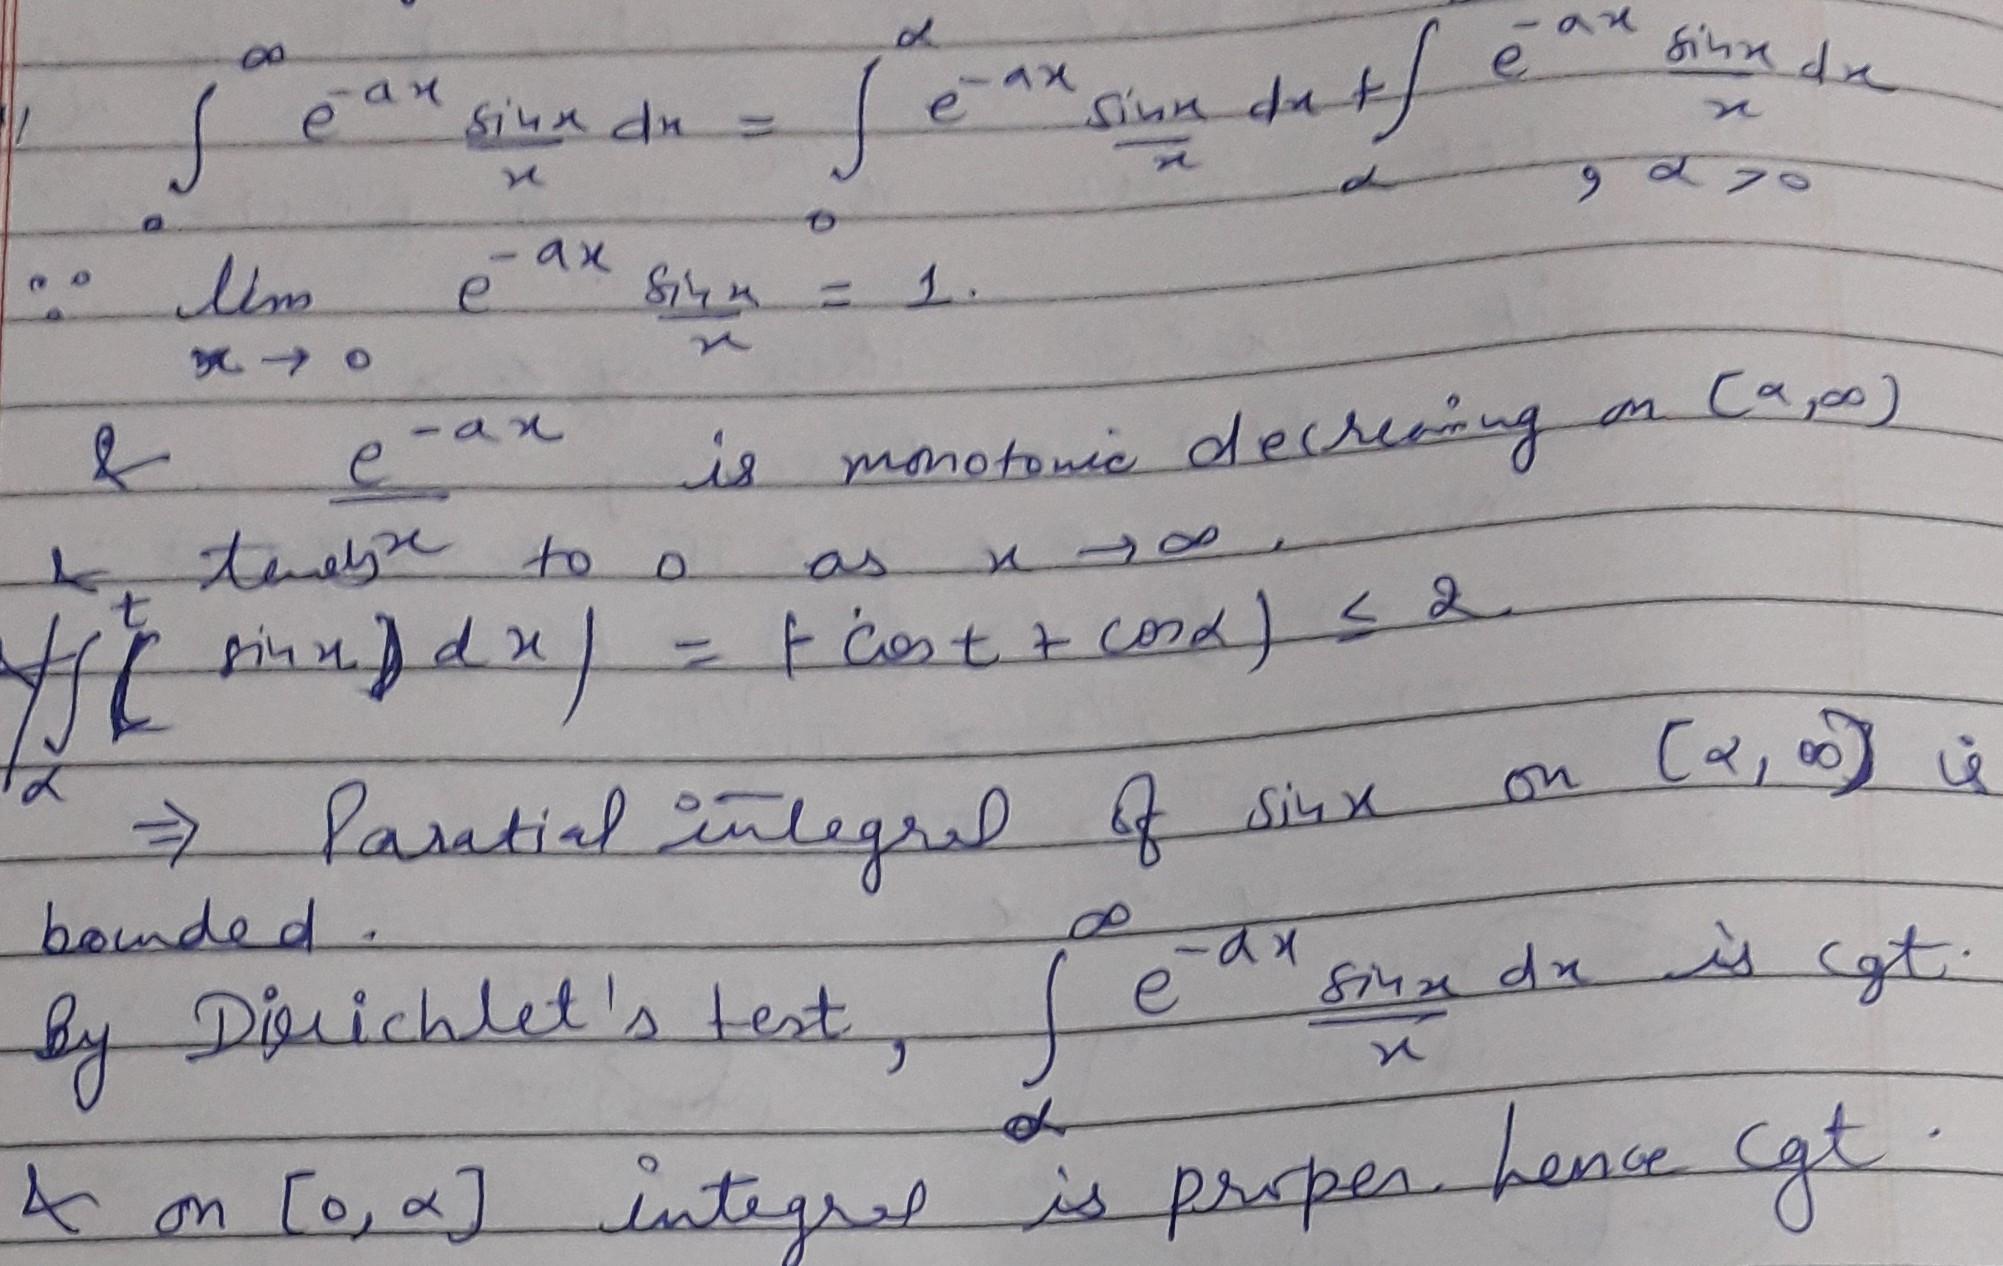 ∫₀^∞ e^{-ax} sinx/x dx = ∫₀^α e^{-ax} sinx/x dx + ∫_α e^{-ax} sinx/x dx , α > 0
∵ lim_{x → 0} e^{-ax} sinx/x = 1.
& e^{-ax}/x is monotonic decreasing on [α, ∞)
& tends to 0 as x → ∞.
|∫_α^t sinx dx| = |-cost + cosα| ≤ 2
⇒ Paratial integral of sinx on [α, ∞) is
bounded.
By Dirichlet's test, ∫_α^∞ e^{-ax} sinx/x dx is cgt.
& on [0, α] integral is proper hence cgt.